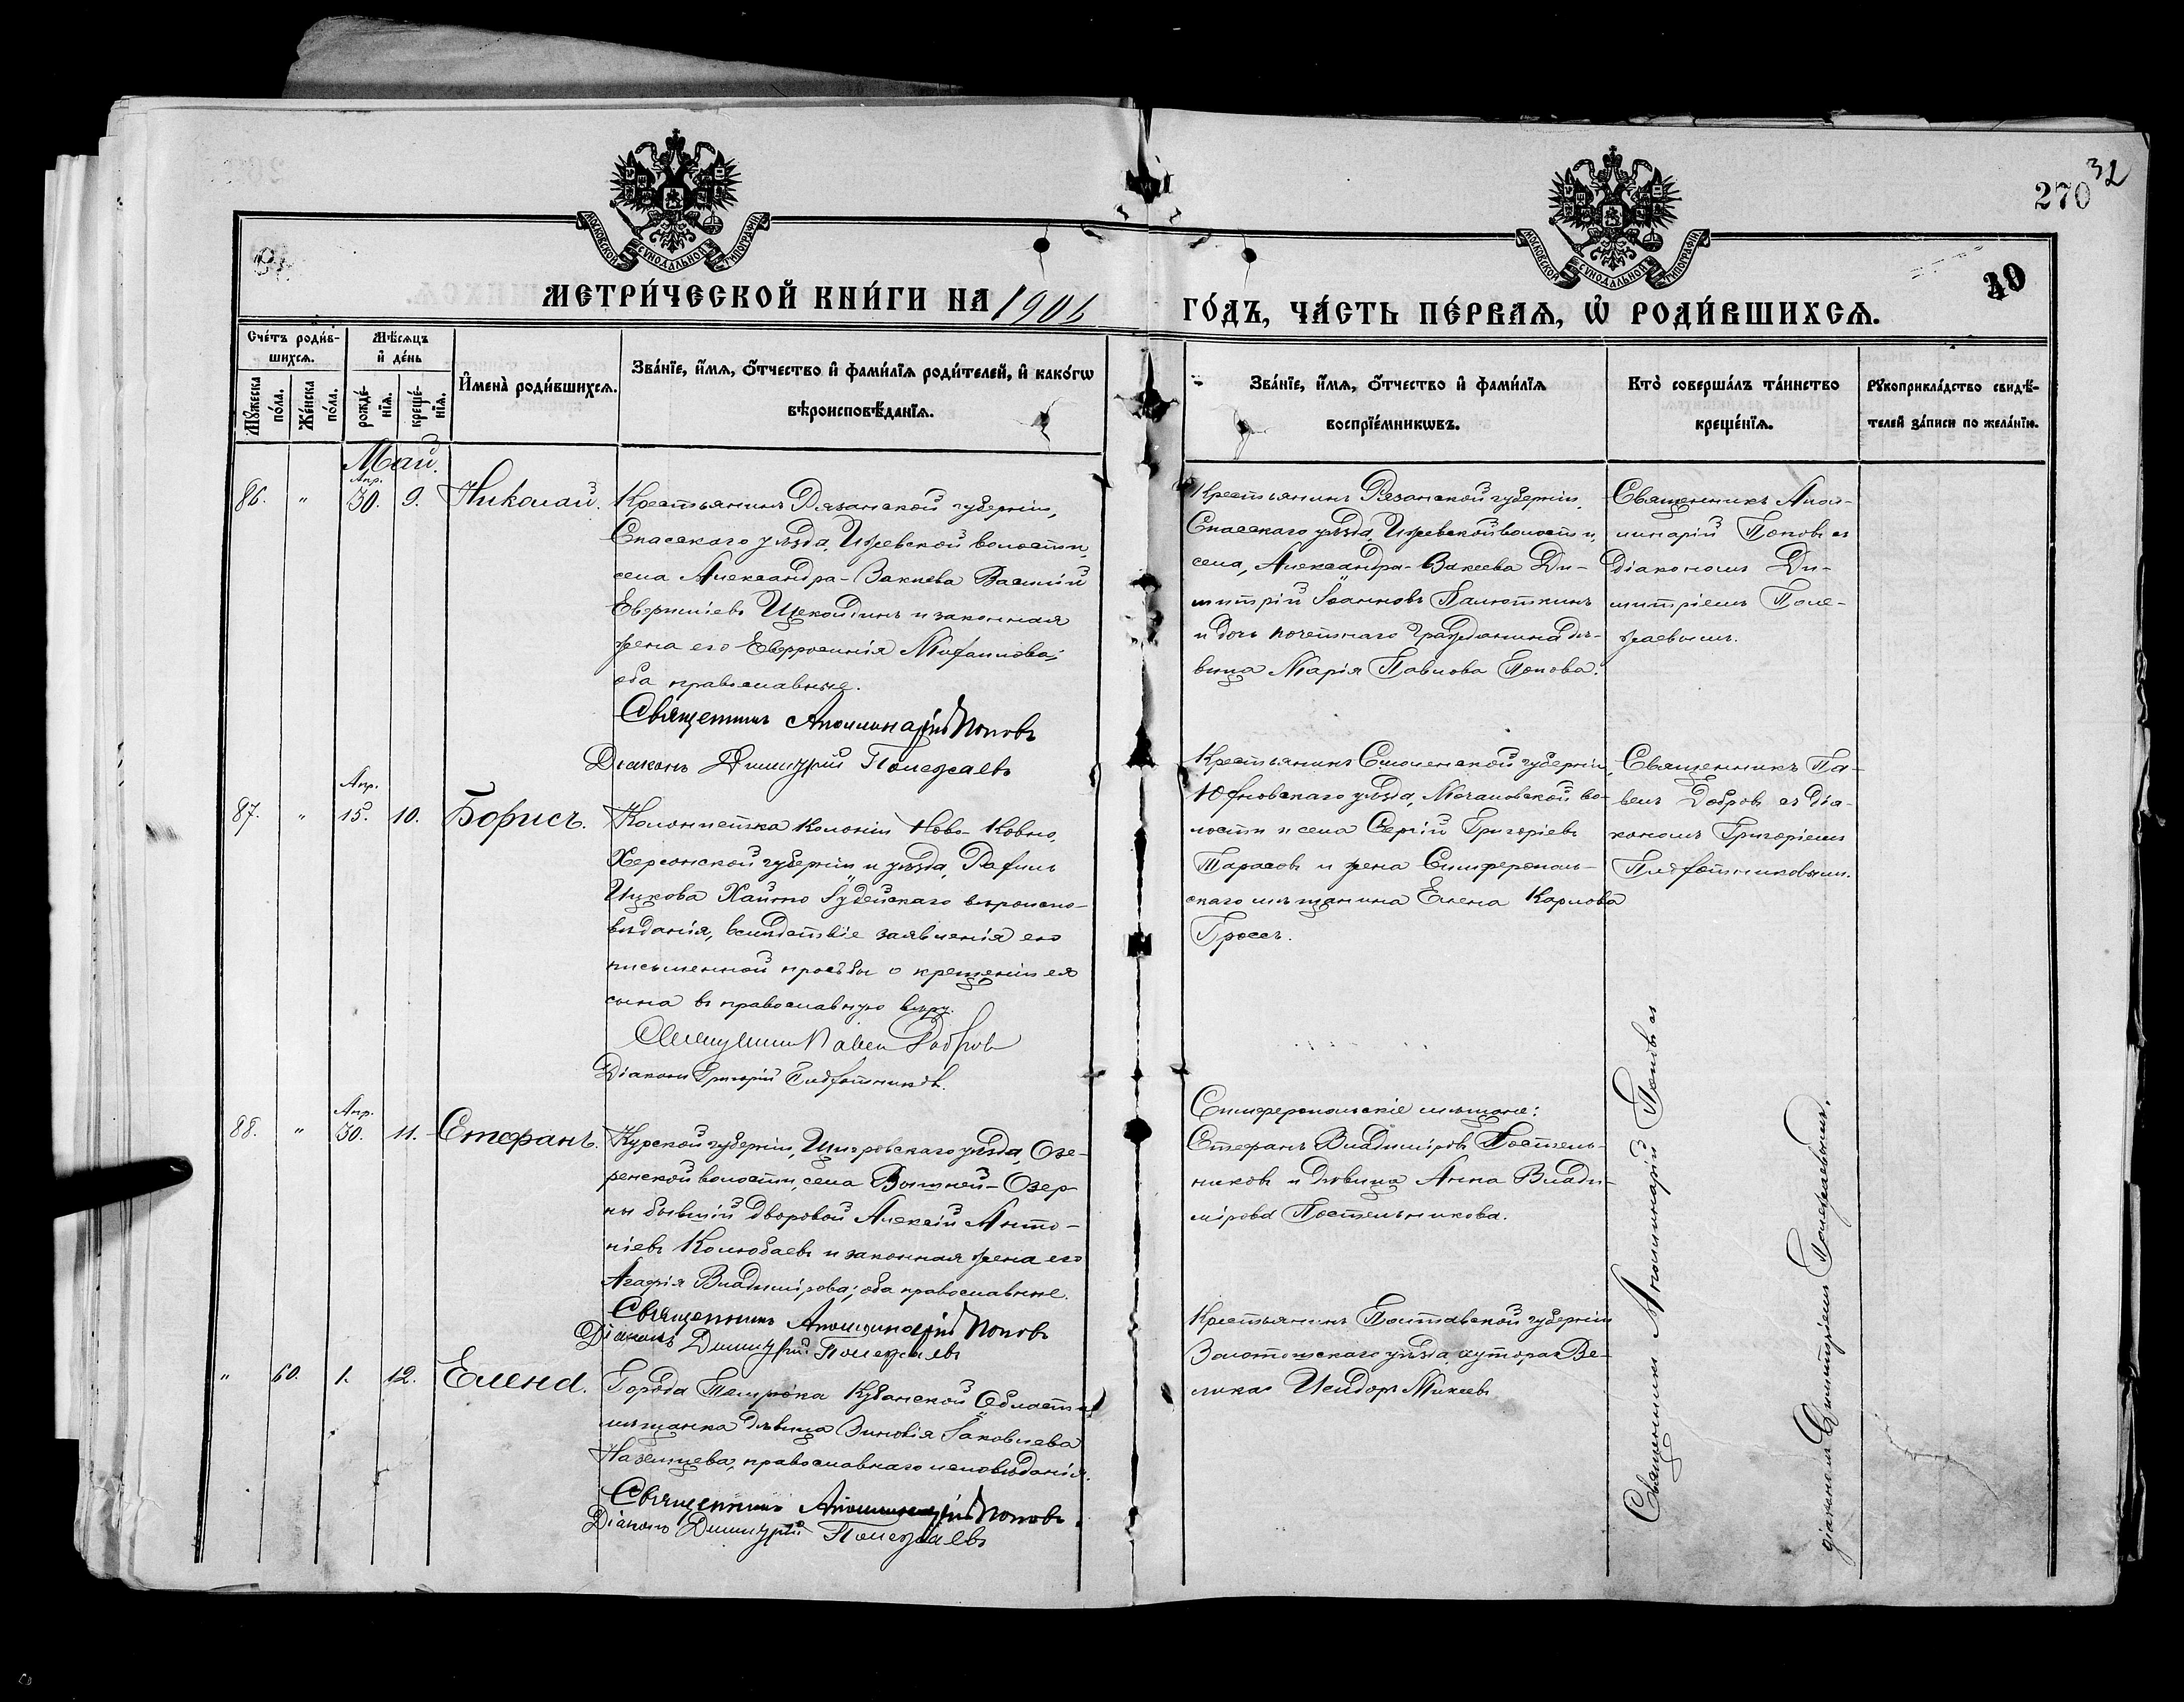 32
270
40
МОСКОВСКОЙ СѴНОДАЛЬНОЙ ТИПОГРАФІИ
МОСКОВСКОЙ СѴНОДАЛЬНОЙ ТИПОГРАФІИ
МЕТРИ́ЧЕСКОЙ КНИ́ГИ НА 1906
ГО́ДЪ, ЧА́СТЬ ПЕ́РВАѦ, Ѡ҆ РОДИ́ВШИХСѦ.
Сче́тъ роди́в-
шихсѧ.
Мꙋ́жеска по́ла.
Же́нска по́ла.
Мѣ́сѧцъ
и҆ де́нь
рожде́-
нїѧ.
креще́-
нїѧ.
И҆мена̀ роди́вшихсѧ.
Зва́нїе, и҆́мѧ, ѻ҆́тчество и҆ фами́лїѧ роди́телей, и҆ како́гѡ
вѣроисповѣ́данїѧ.
Зва́нїе, и҆́мѧ, ѻ҆́тчество и҆ фами́лїѧ
воспрїе́мникѡвъ.
Кто̀ соверша́лъ та́инство
креще́нїѧ.
Рꙋкоприкла́дство свидѣ́-
телей за́писи по жела́нїю.
Май.
Апр.
86. " 30. 9. Николай.
Крестьянинъ Рязанской губерніи,
Спасскаго уѣзда, Ижевской волости,
села Александра-Закиева Василій
Евгениіевъ Щеколдинъ и законная
жена его Евфросинія Митаилова;
оба православные.
Священникъ Аполлинарій Поповъ
Діаконъ Димитрій Полежаевъ
Крестьянинъ Рязанской губерніи,
Спасскаго уѣзда, Ижевской волости,
села, Александра-Закеева Ди-
митрій Іоанновъ Палюткинъ
и дочь почетнаго Гражданина дѣ-
вица Марія Павлова Попова.
Священникъ Апол-
линарій Поповъ съ
Діакономъ Ди-
митріемъ Поле-
жаевымъ.
Апр.
87. " 15. 10. Борисъ.
Колонистка Колоніи Ново-Ковно,
Херсонской губерніи и уѣзда,
Ицкова Хаимо Іудейскаго вѣроиспо-
вѣданія, вслѣдствіе заявленія ею
письменной просьбы о крещеніи ея
сына въ православную вѣру.
Священникъ Павел Добров
Діаконъ Григорій
Крестьянинъ Смоленской губерніи,
Юхновскаго уѣзда, во-
лости и села Сергій Григоріевъ
Тарасовъ и жена Симферополь-
скаго мѣщанина Елена Карлова
Гроссъ.
Священникъ Па-
велъ Добровъ съ Діа-
кономъ Григоріемъ
Апр.
88. " 30. 11. Стефанъ.
Курской губерніи, Щигровскаго уѣзда, Озе-
ренской волости, села Вышней-Озер-
ны бывшій дворовой Алексій Анто-
ніевъ Колюбаевъ и законная жена его
Агафія Владимірова; оба православные.
Священникъ Аполлинарій Поповъ
Діаконъ Димитрій Полежаевъ
Симферопольскіе мѣщане:
Стефанъ Владиміровъ Постель-
никовъ и дѣвица Анна Влади-
мірова Постельникова.
" 60. 1. 12. Елена.
Города Темрюка Кубанской Области
мѣщанка дѣвица Зиновія Іаковлева
православнаго исповѣданія.
Священникъ Аполлинарій Поповъ.
Діаконъ Димитрій Полежаевъ
Крестьянинъ Полтавской губерніи
Золотошскаго уѣзда, хутора Ве-
лика Исидоръ Микеевъ
Священникъ Аполлинарій Поповъ съ
діакономъ Димитріемъ Полежаевымъ.